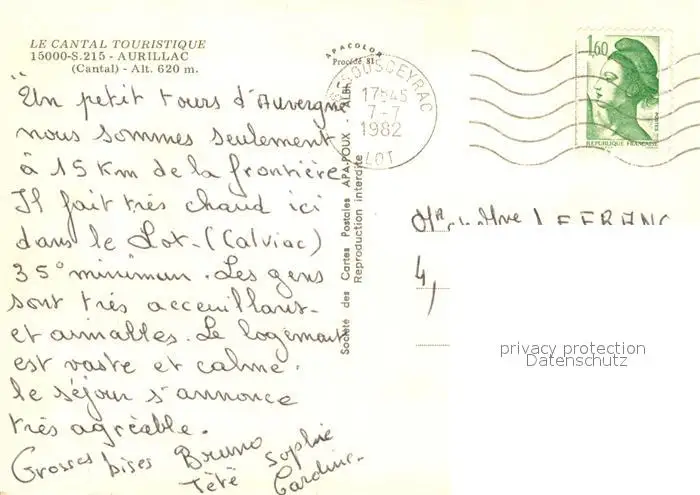 LE CANTAL TOURISTIQUE
15000-S.215 - AURILLAC
(Cantal) - Alt. 620 m.
"Un petit tours d'Auvergne
nous sommes seulement
à 15 Km de la frontière
Il fait très chaud ici
dans le Lot-(Calviac)
35° minimum. Les gens
sont très acceuillant-
et aimables. Le logement
est vaste et calme.
le séjour s'annonce
très agréable.
Grosses bises Bruno Sophie
Tété
APACOLOR
Procédé 81
Société des Cartes Postales APA-POUX - ALBI
Reproduction interdite
SOUSCEYRAC
17H45
7-7
1982
LOT
1,60
REPUBLIQUE FRANÇAISE
Mr et Mme LEFRANC
4,
privacy protection
Datenschutz